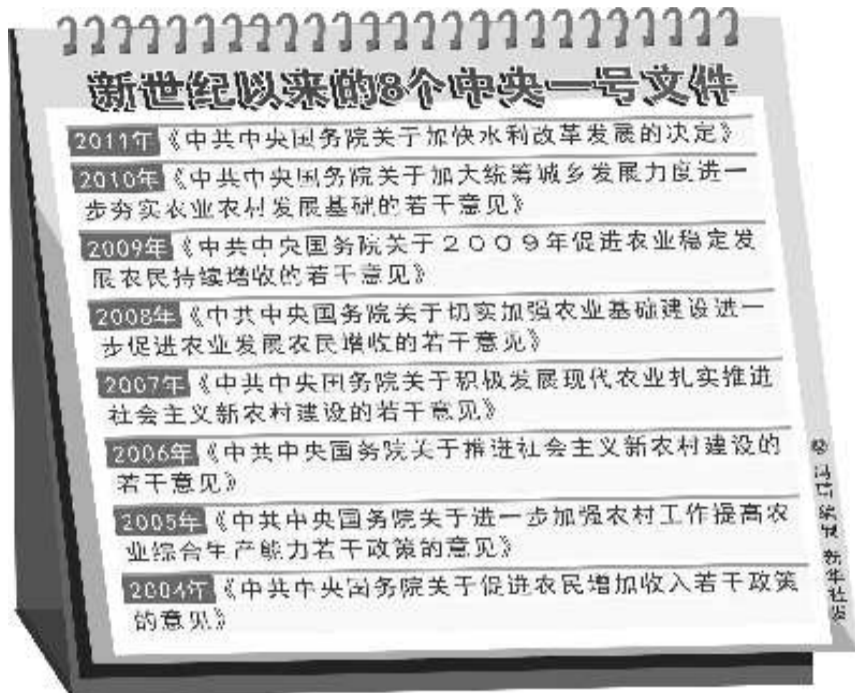 新世纪以来的8个中央一号文件
2011年《中共中央国务院关于加快水利改革发展的决定》
2010年《中共中央国务院关于加大统筹城乡发展力度进一
步夯实农业农村发展基础的若干意见》
2009年《中共中央国务院关于２００９年促进农业稳定发
展农民持续增收的若干意见》
2008年《中共中央国务院关于切实加强农业基础建设进一
步促进农业发展农民增收的若干意见》
2007年《中共中央国务院关于积极发展现代农业扎实推进
社会主义新农村建设的若干意见》
2006年《中共中央国务院关于推进社会主义新农村建设的
若干意见》
2005年《中共中央国务院关于进一步加强农村工作提高农
业综合生产能力若干政策的意见》
2004年《中共中央国务院关于促进农民增加收入若干政策
的意见》
新华社发